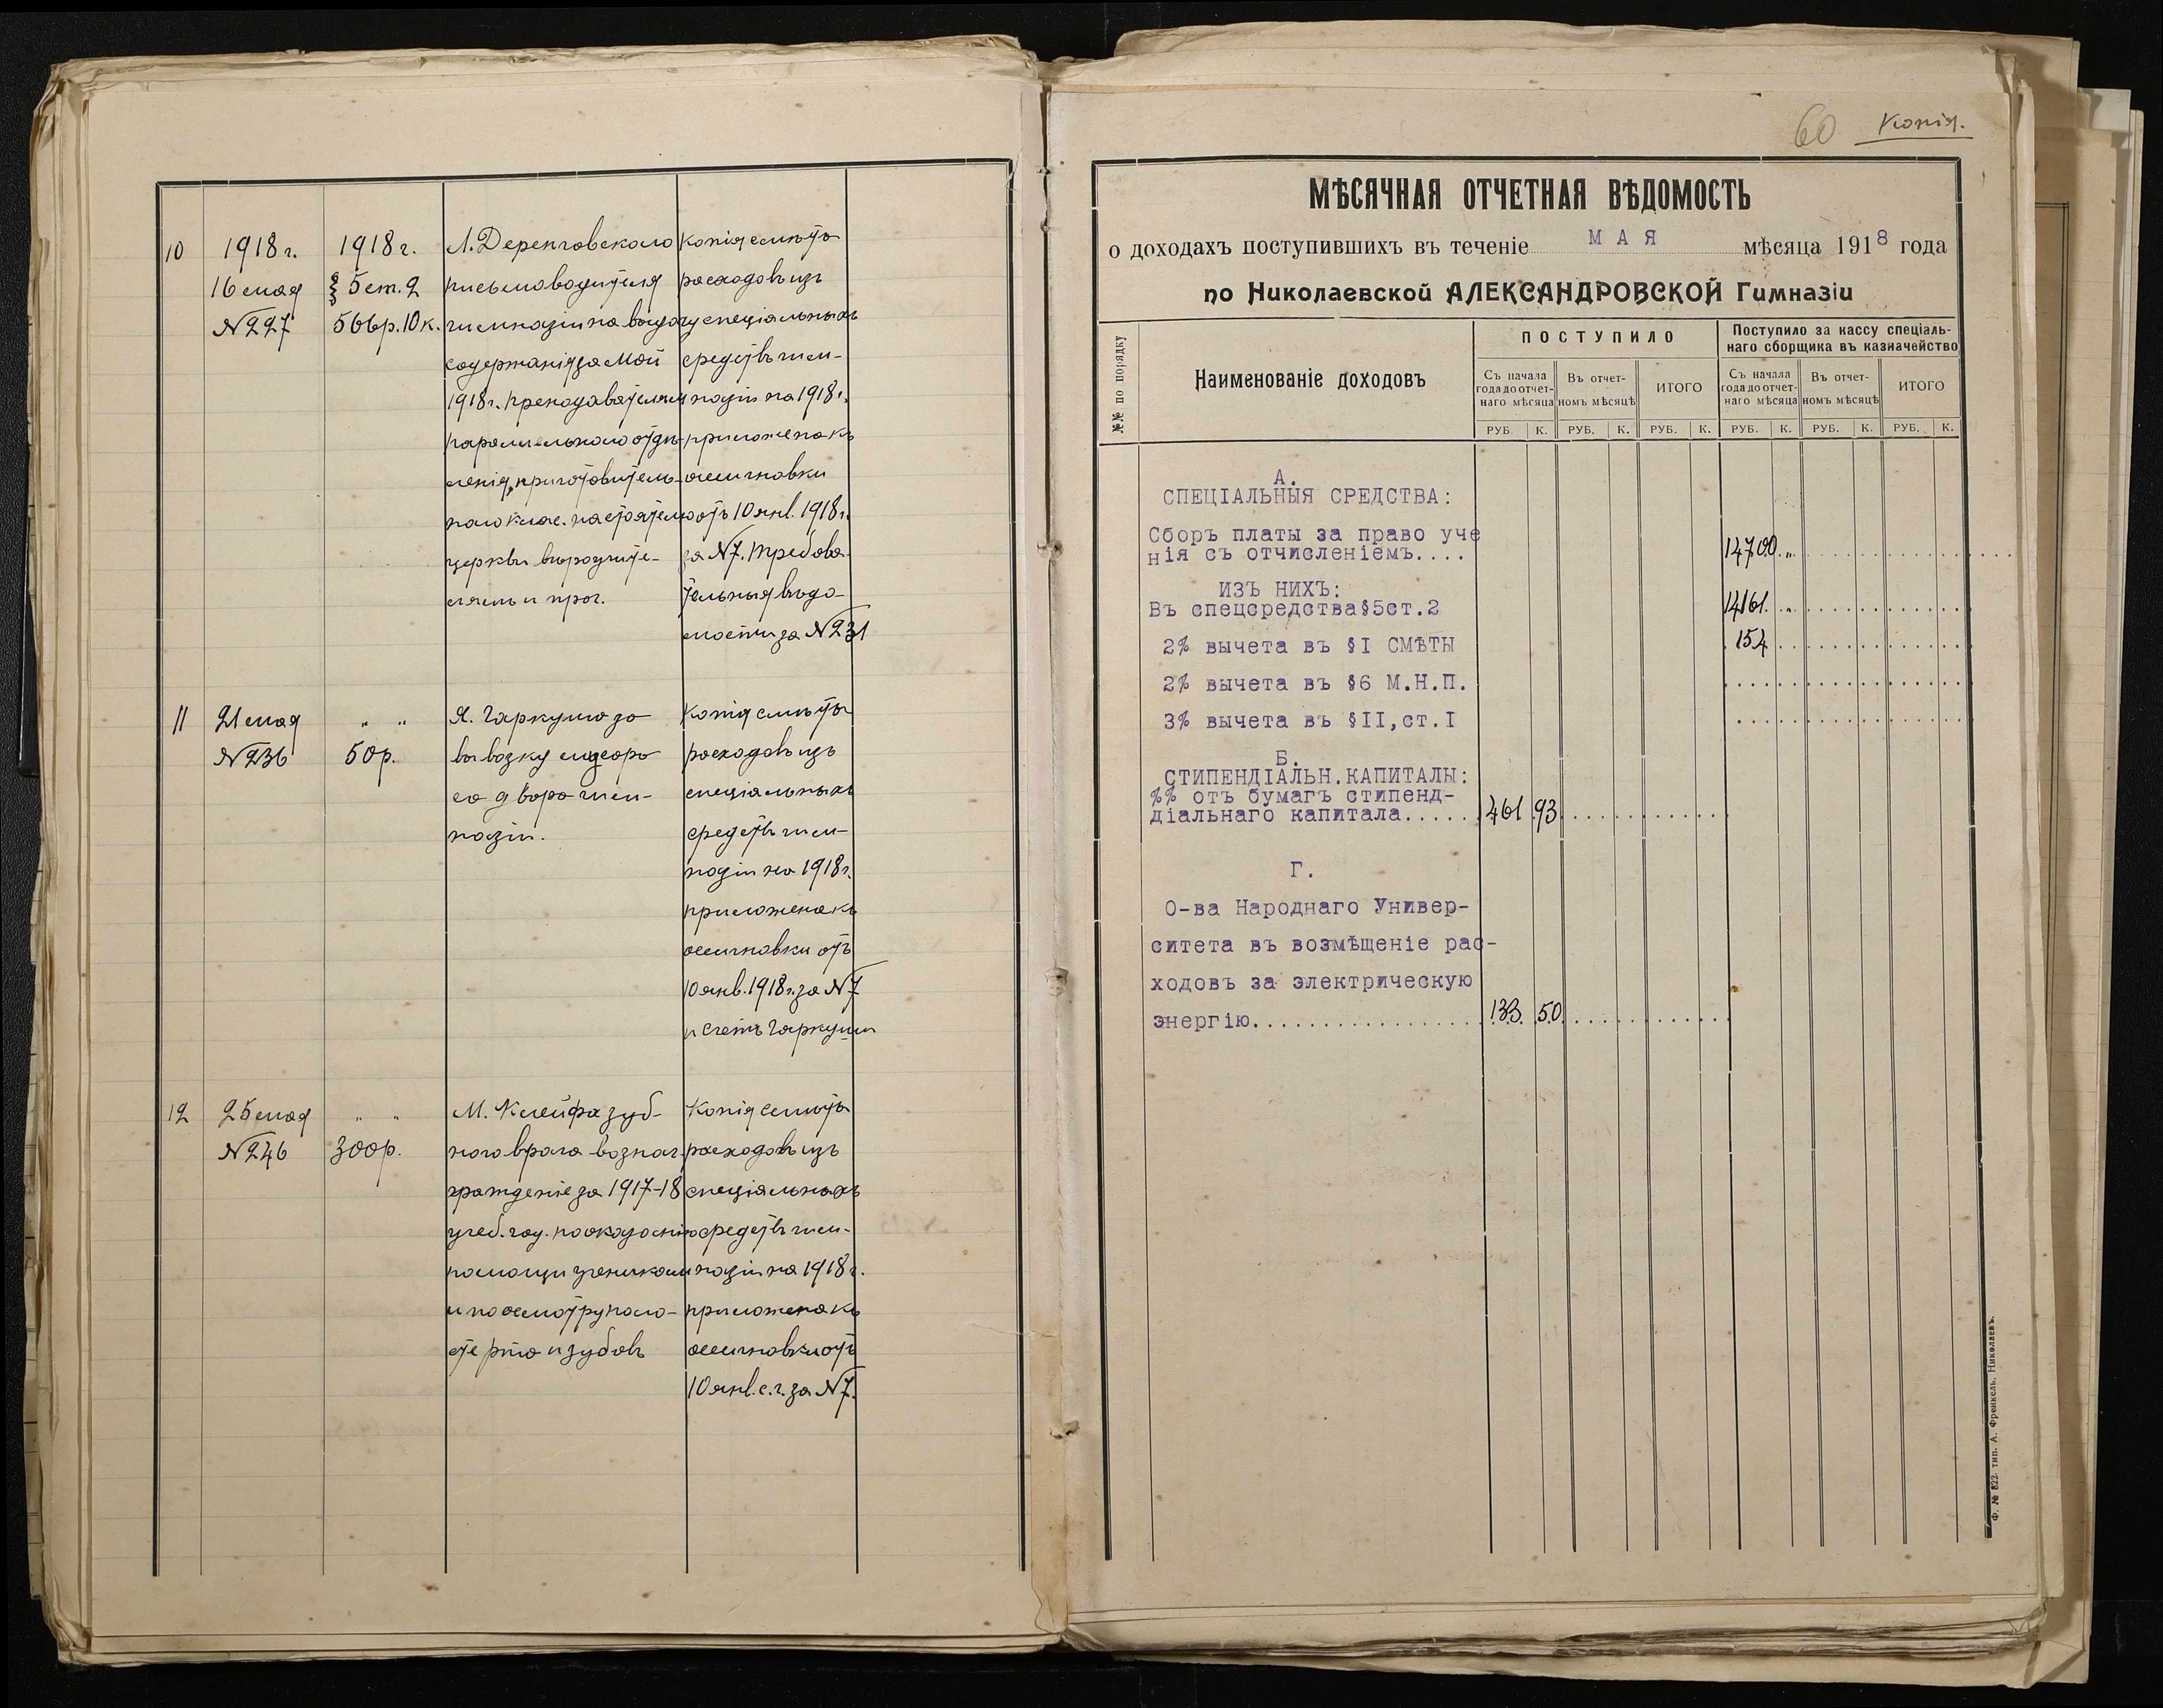 10
1918 г.
16 мая
№ 227
1918 г.
§ 5 ст. 2
566 р. 10 к.
письмоводителя
гимназіи на выдачу
содержанія за Май
1918 г. преподавателям
параллельного отдѣ-
ленія, приготовитель-
церкви
и проч.
копія смѣты
расходовъ изъ
спеціальныхъ
средствъ гим-
назіи на 1918 г.
приложена къ
ассигновки
отъ 10 янв. 1918 г.
за № 7. Требова-
тельныя вѣдо-
мости за № 231
11
21 мая
№ 236
" "
50 р.
Я. Гаркуша за
вывозку мусора
со двора гим-
назіи.
Копія смѣты
расходовъ изъ
спеціальныхъ
средствъ гим-
назіи на 1918 г.
приложена къ
ассигновки отъ
10 янв. 1918 г. за № 7
и счетъ Гаркуши
12
25 мая
№ 246
" "
300 р.
М. Клейфа зуб-
ного врача вознаг-
ражденіе за 1917-18
учеб. год. по оказанію
помощи ученикам
и по осмотру поло-
сти рта и зубовъ
Копія смѣты
расходовъ изъ
спеціальныхъ
средствъ гим-
назіи на 1918 г.
приложена къ
ассигновки отъ
10 янв. с. г. за № 7.
60 Копія.
МѢСЯЧНАЯ ОТЧЕТНАЯ ВѢДОМОСТЬ
о доходахъ поступившихъ въ теченіе МАЯ мѣсяца 1918 года
по Николаевской АЛЕКСАНДРОВСКОЙ Гимназіи
№№ по порядку
Наименованіе доходовъ
ПОСТУПИЛО
Поступило за кассу спеціаль-
наго сборщика въ казначейство
Съ начала
года до отчет-
наго мѣсяца
Въ отчет-
номъ мѣсяцѣ
ИТОГО
Съ начала
года до отчет-
наго мѣсяца
Въ отчет-
номъ мѣсяцѣ
ИТОГО
РУБ. К. РУБ. К. РУБ. К. РУБ. К. РУБ. К. РУБ. К.
А.
СПЕЦІАЛЬНЫЯ СРЕДСТВА:
Сборъ платы за право уче
нія съ отчисленіемъ.... 14700 „
ИЗЪ НИХЪ:
Въ спецсредства§5ст.2 14161. „
2% вычета въ §I СМѢТЫ 154
2% вычета въ §6 М.Н.П.
3% вычета въ §II,ст.I
Б.
СТИПЕНДІАЛЬН.КАПИТАЛЫ:
%% отъ бумагъ стипенд-
діальнаго капитала..... 1461 93
Г.
О-ва Народнаго Универ-
ситета въ возмѣщеніе рас-
ходовъ за электрическую
энергію................ 133. 50
Ф. № 822. тип. А. Френкель, Николаевъ.